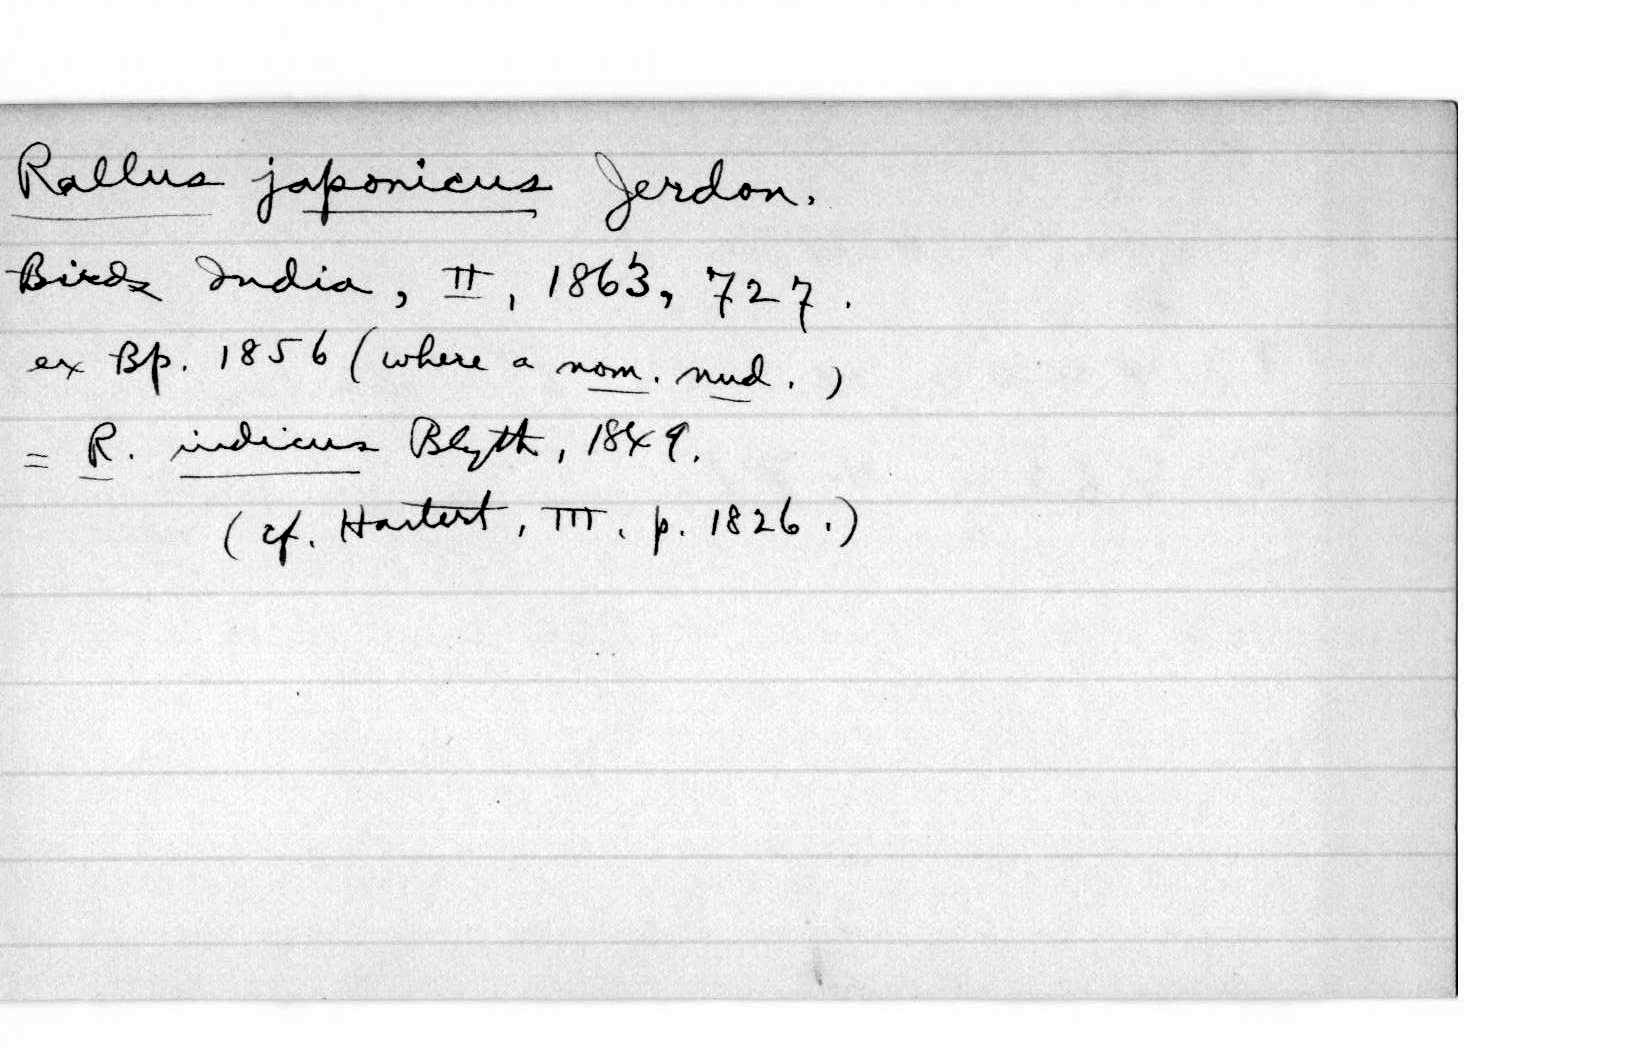 Rallus japonicus Jerdon.
Birds India, II, 1863, 727.
ex Bp. 1856 (where a nom. nud.)
= R. indicus Blyth, 1849.
(cf. Hartert, III. p. 1826.)